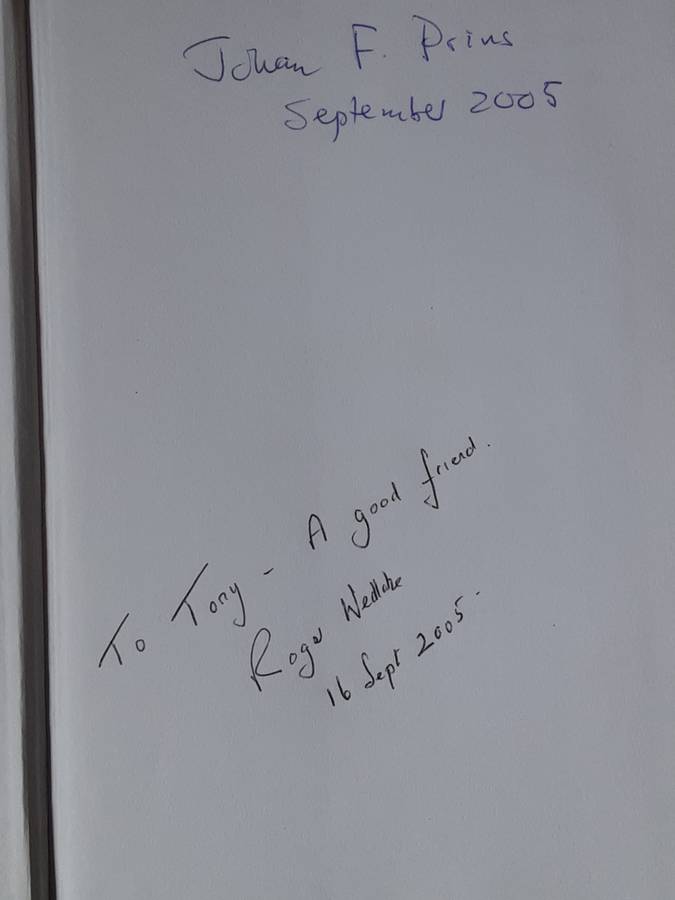 Johan F. Prins
September 2005
To Tony - A good friend.
Roger
16 Sept 2005.